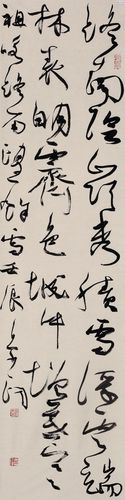 終南陰嶺秀積雪浮雲端
林表明霽色城中增暮寒
祖咏終南望餘雪